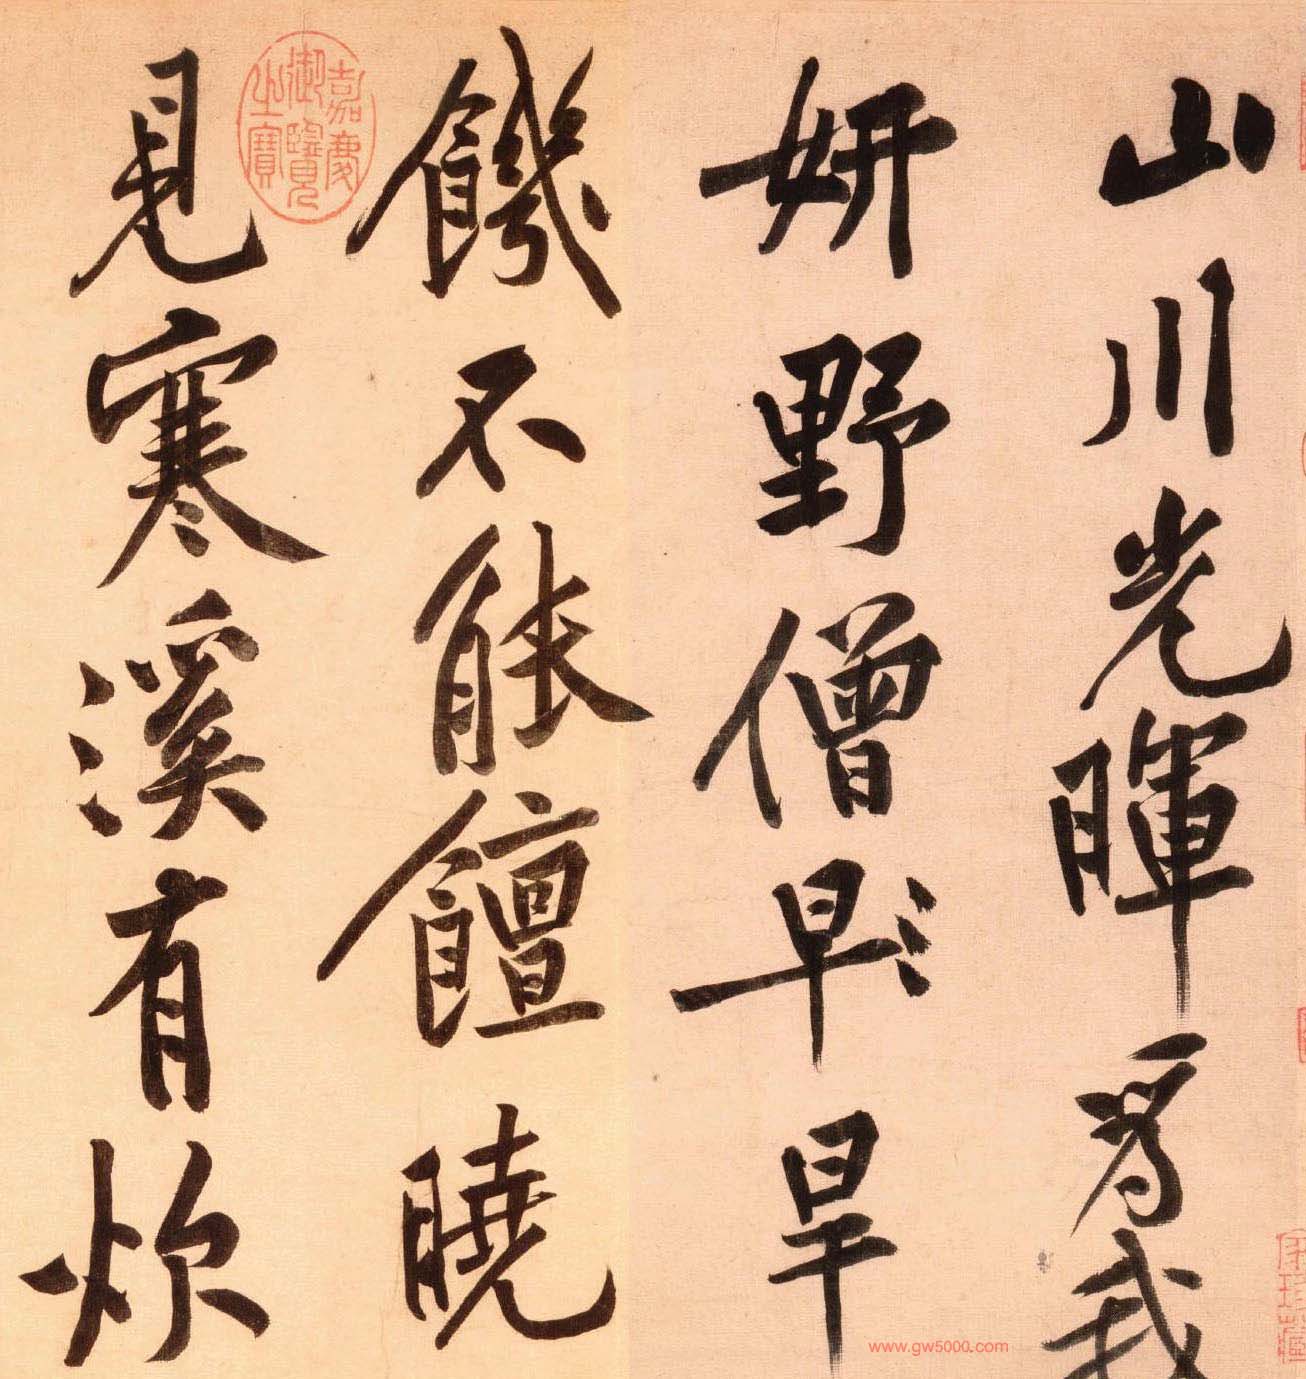 山川光暉為我
妍野僧早旱
饑不能饘曉
見寒溪有炊
嘉慶
御覽
之寶
www.gw5000.com